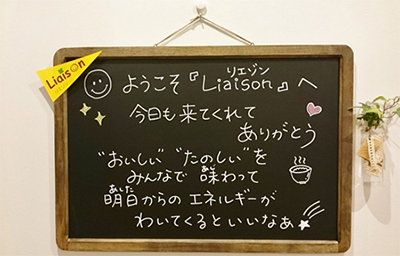 Liaison
リエゾン
ようこそ『Liaison』へ
今日も来てくれて
ありがとう
"おいしい" "たのしい"を
みんなで 味わって
明日からの エネルギーが
わいてくるといいなぁ